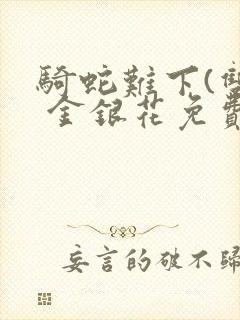 騎蛇難下(雙
金銀花免費
妄言的破不歸